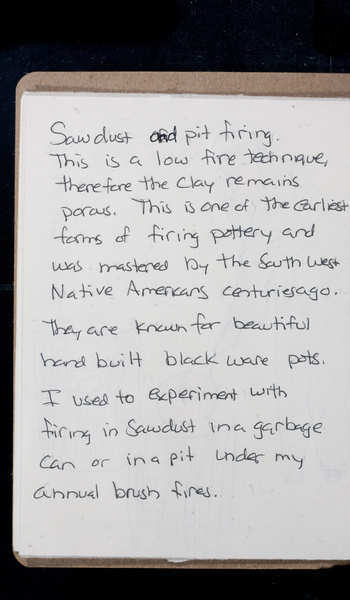 Sawdust and pit firing.
This is a low fire technique,
therefore the clay remains
porous. This is one of the earliest
forms of firing pottery and
was mastered by the South West
Native Americans centuries ago.
They are known for beautiful
hand built black ware pots.
I used to experiment with
firing in Sawdust in a garbage
can or in a pit under my
annual brush fires.